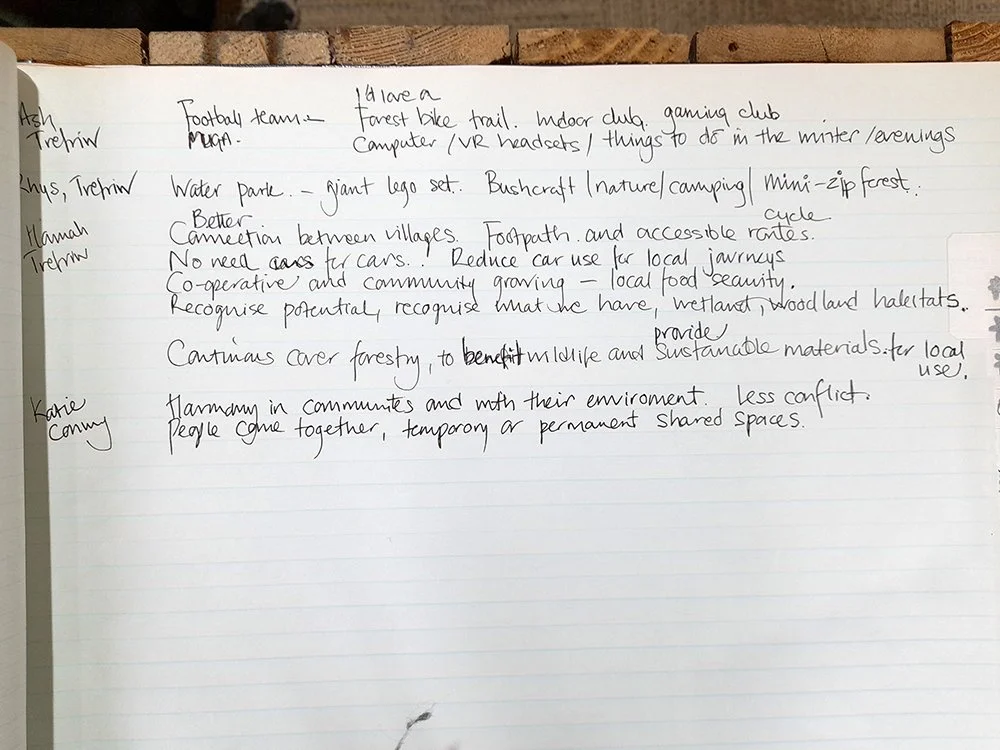 I'd love a
Ash Football team - Forest bike trail. Indoor club. gaming club
Trefriw MUGA. Computer / VR headsets / things to do in the winter / evenings
Rhys, Trefriw Water park. - giant lego set. Bushcraft / nature / camping / mini-zip forest.
Better cycle
Hannah Connection between villages. Footpath and accessible routes.
Trefriw No need for cars. Reduce car use for local journeys
Co-operative and community growing - local food security.
Recognise potential, recognise what we have, wetland, woodland habitats.
provide
Continuous cover forestry, to benefit wildlife and sustainable materials for local
use.
Katie Harmony in communities and with their enviroment. Less conflict.
Conwy People come together, temporary or permanent shared spaces.